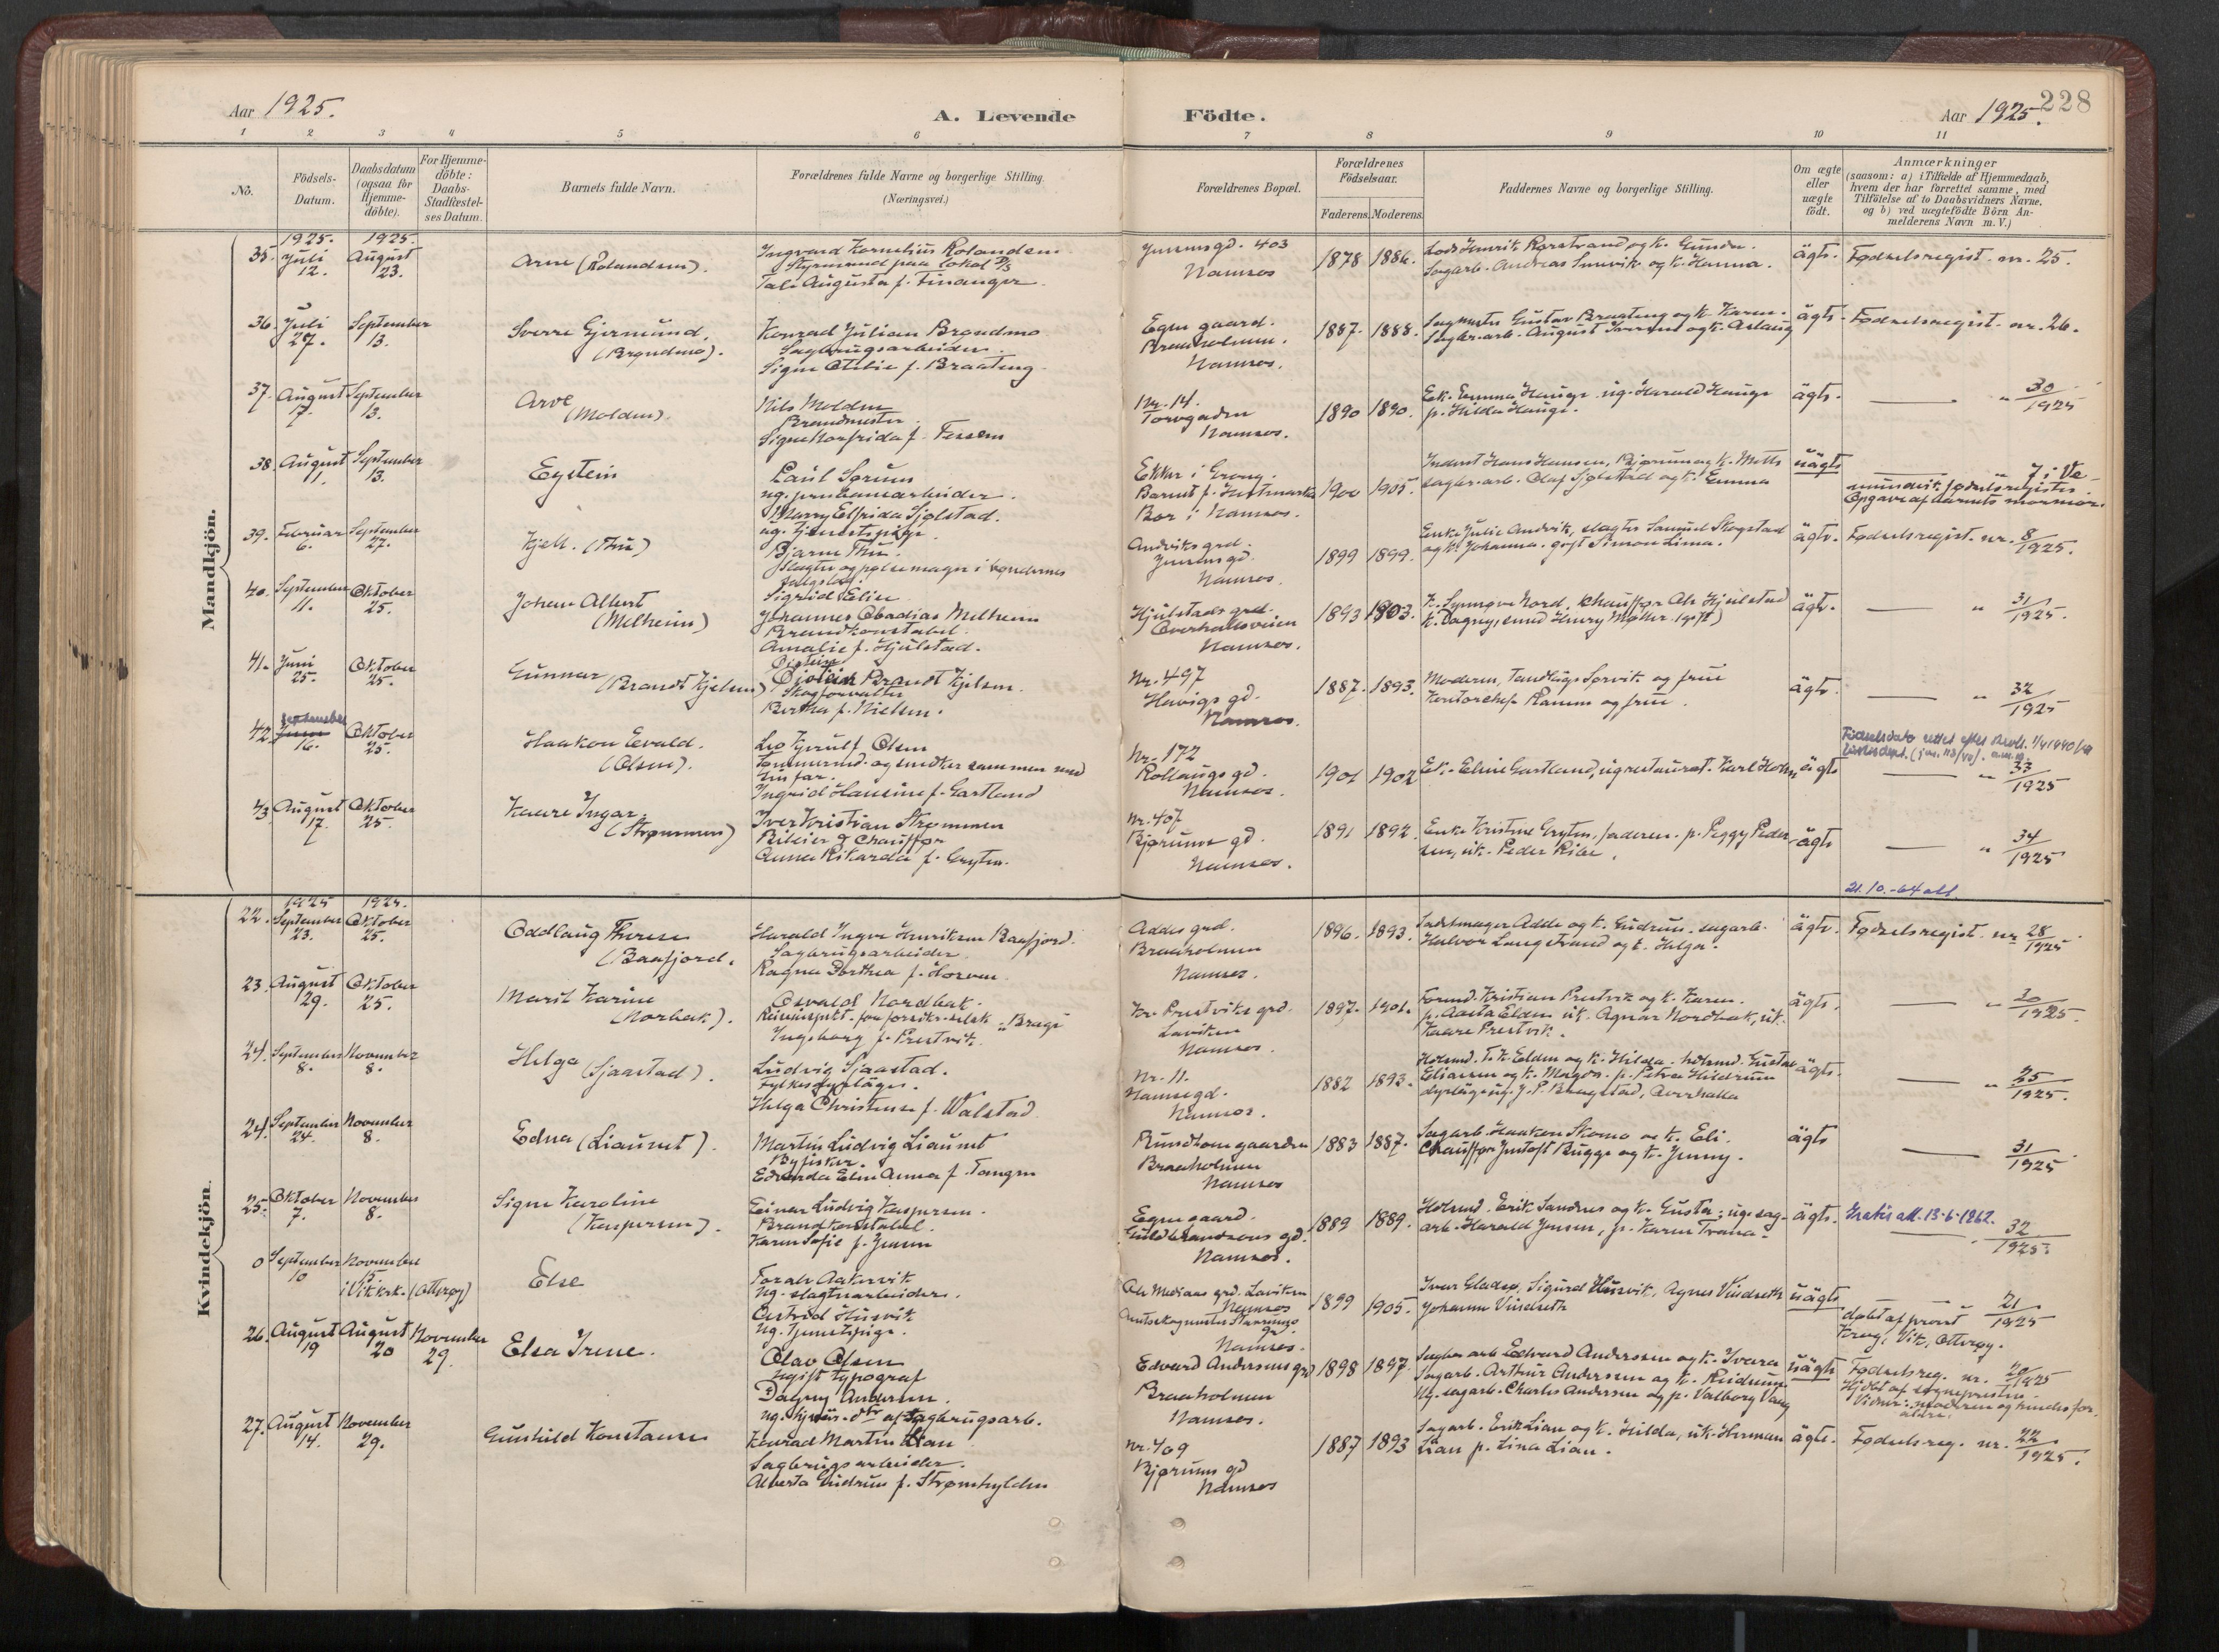 Aar 1925.
A. Levende
Födte.
Aar 1925.
228
1 2 3 4 5 6 7 8 9 10 11
No.
Födsels-
Datum.
Daabsdatum
(ogsaa for
Hjemme-
döbte).
For Hjemme-
döbte:
Daabs-
Stadfæstel-
ses Datum.
Barnets fulde Navn.
Forældrenes fulde Navne og borgerlige Stilling.
(Næringsvei.)
Forældrenes Bopæl.
Forældrenes
Födselsaar.
Faderens. Moderens.
Faddernes Navne og borgerlige Stilling.
Om ægte
eller
uægte
födt.
Anmærkninger
(saasom: a) i Tilfælde af Hjemmedaab,
hvem der har forrettet samme, med
Tilföielse af to Daabsvidners Navne.
og b) ved uægtefödte Börn An-
melderens Navn m. V.)
Mandkjön.
35. 1925. Juli 12.
1925. August 23.
Arne (Rolandsen).
Ingvard Kornelius Rolandsen
Styrmand paa lokal D/S
Tali Augusta f. Finanger
403
Namsos
1878 1886.
og k. Hanna.
ägte.
Fødselsregist. nr. 25.
36. Juli 27.
September 13.
Sverre Gjermund.
(Brøndmo).
Konrad Julian Brøndmo
Sagbrugsarbeider.
Signe Otelie f. Braateng
Egen gaard.
Braaholmen.
Namsos.
1887. 1888.
Gustav Braateng og k. Karen.
August Iversen og k. Aslaug
ägte.
Fødselsregist. nr. 26.
37. August 17.
September 13.
Arve
(Molden)
Nils Molden
Brandmester.
f. Fessem
Nr. 14.
Torvgaden
Namsos.
1890 1890.
Ek. Emma Hauge. ug. Harald Hauge
p. Hilda Hauge.
ägte.
" 30/1925
38. August 11.
September 13.
Eystein
Paul Sørum
ug. jernbanearbeider.
Marry Elfrida Sjølstad.
ug. tjenestepige.
Ekker i Grong.
Bor i Namsos.
1900 1905.
Hans Hansen, Bjørum og k. Mette
sagbr. arb. Olaf Sjølstad og k. Emma
uägte
fødselsregister.
Opgave af barnets mormor.
39. Februar 6.
September 27.
Kjell. (Thu)
Bjarne Thu.
Slagter og pølsemager i bøndernes
salgslag.
Sigrid Elise
Andviks grd.
Namsos.
1899 1899.
Enke Julie Andvik, slagter Samuel Skogstad
og k. Johanna. gift Simon Lima.
ägte.
Fødselsregist. nr. 8/1925.
40. September 11.
Oktober 25.
Johan Albert
(Melheim)
Johannes Obadias Melheim
Brandkonstabel.
Amalie f. Hjulstad.
Hjulstads grd.
Overhallsveien
Namsos.
1893 1903.
K. Synnøve Nord, chauffør Ole Hjulstad
k. Dagny, smed Henry Møller (gift)
ägte.
" 31/1925.
41. Juni 25.
Oktober 25.
Gunnar
(Brandt Kjelsen)
Øistein
Brandt Kjelsen.
Skogforvalter
Bertha f. Nielsen.
Nr. 497
Havigs gd.
Namsos.
1887. 1893.
Moderen, Tandläge Sørvik og frue
Kontorchef Ramm og frue.
ägte.
" 32/1925
42. september
Juni
16.
Oktober 25.
Haakon Evald.
(Olsen).
Leo Gerulf Olsen
Tømmermd. og snedker sammen med
sin far.
Ingrid Hansine f. Gartland
Nr. 172
Rollaugs gd.
Namsos.
1901 1902
Ek. Eline Gartland, ug. restaurat. Karl Holm
ägte
Fødselsdato rettet efter
" 33/1925
43. August 17.
Oktober 25.
Kaare Ingar
(Strømmen)
Iver Kristian Strømmen
Bileier & Chauffør
Anna Rikarda f. Gryten.
Nr. 407
Bjørums gd.
Namsos.
1891 1892.
Enke Kristine Gryten, faderen. p. Peggy Peder-
sen, uk. Peder Ribe.
ägte
" 34/1925
Kvindekjön.
21.10.-64 att.
22. 1925 September 23.
1925. Oktober 25.
Oddlaug Therese
(Baafjord.
Harald Ingvar Henriksen Baafjord.
Sagbrugsarbeider
Ragna Dorthea f. Horven.
Addes grd.
Braaholmen
Namsos.
1896. 1893.
Adde og k. Gudrun. sagarb.
Halvor Langstrand og k. Helga.
ägte.
Fødselsregist. nr 28/1925
23. August 29.
Oktober 25.
Marit Karine
(Norbak).
Osvald Nordbak.
Reiseinspekt. for forsikr. selsk. "Brage
Ingeborg f. Prestvik.
Kr. Prestviks grd.
Laviken
Namsos.
1897. 1901.
Formd. Kristian Prestvik og k. Karen.
p. Aasta Elden uk. Agnar Nordbak, uk.
Kaare Prestvik.
ägte.
24. September 8.
November 8.
Helga (Sjaastad).
Ludvig Sjaastad.
Fylkesdyrläge.
Helga Christense f. Walstad
Nr. 11.
Namsos.
1882 1893.
Elden og k. Hilda.
Eliassen og k. Magda. p. Petra Hildrum
Overhalla
ägte.
" 25/1925.
24. September 24.
November 8.
Edna (Liaunet).
Martin Ludvig Liaunet
Byfisker.
Edvarda Elen Anna f. Tangen
Rundhomgaarden
Braaholmen
Namsos
1883 1887.
Sagarb. Haakon Skomo og k. Eli.
Chauffør Justoft Bugge og k. Jenny.
ägte
31/1925
25. Oktober 7.
November 8.
Signe Karoline
(Kaspersen).
Einar Ludvig Kaspersen.
Brandkonstabel.
Karen Sofie f. Jensen
Egen gaard.
Guldbrandsens gd.
Namsos.
1889 1889.
Erik Sandnes og k. Gusta; ug. sag-
arb. Harald Jensen, p. Karen Trana.
ägte.
Gratis att. 13-6-1962.
32/1925.
0 September 10
November 15
i Vik krk. (Otterøy)
Else
Aakervik
ug. slagteriarbeider.
Astrid Husvik
ug. tjenestepige.
Laviken
Namsos
Namsos.
1899 1905.
Ivar Gladsø, Sigurd Husvik, Agnes Vindseth
Johanna Vindseth
uägte
21/1925
døbt af prost
Vik, Otterøy.
26. August 19
August 20
November 29.
Elsa Irene.
Olav Olsen
ugift typograf
Dagny Andersen.
ug. hjemmev. dtr. af sagbrugsarb.
Edvard Andersens grd
Braaholmen
Namsos.
1898 1897.
Sagbr. arb Edvard Anderssen og k. Ivara
Sagarb. Arthur Anderssen og k. Reidunn
Ug. sagarb. Charles Andersen og p. Valborg Vang
uägte
Fødselsreg. nr. 20/1925
Hjdbt af sogneprestен.
Vidner: moderen og hendes for-
ældre.
27. August 14.
November 29.
Gunhild Konstanse
Konrad Martin Lian
Sagbrugsarbeider.
Alberta Gudrun f. Strømhylden
nr. 409
Bjørums gd
Namsos
1887 1893
Sagarb. Erik Lian og k. Hilda, uk. Herman
Lian p. Lina Lian.
ägte.
Fødselsreg. nr. 22/1925.